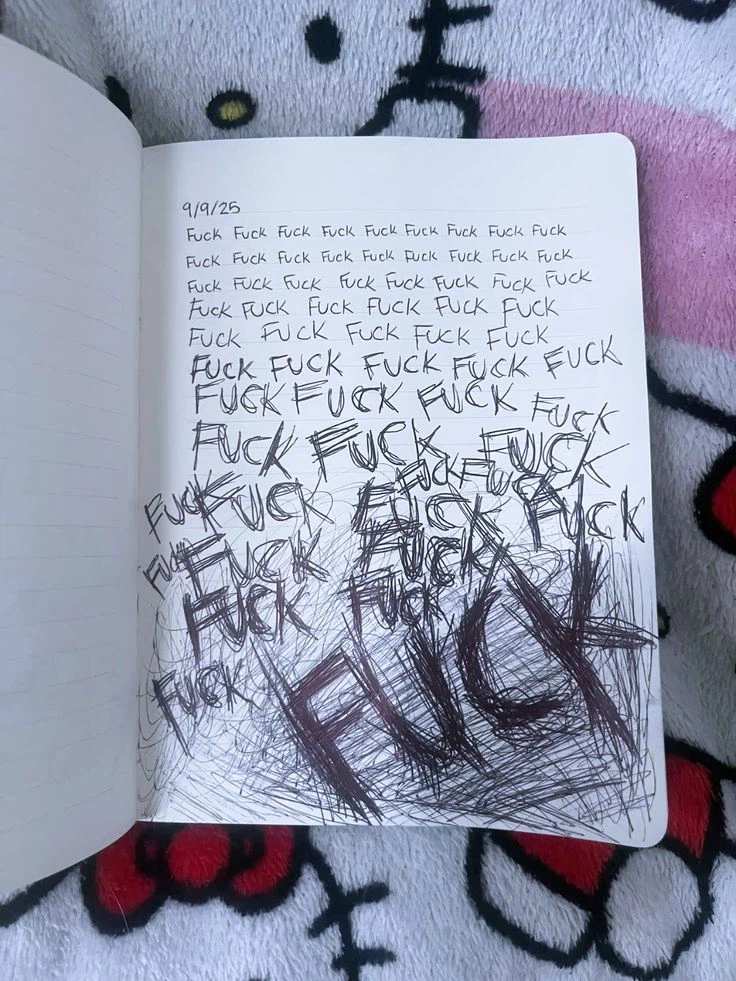 9/9/25
Fuck Fuck Fuck Fuck Fuck Fuck Fuck Fuck Fuck
Fuck Fuck Fuck Fuck Fuck Fuck Fuck Fuck Fuck
Fuck Fuck Fuck Fuck Fuck Fuck Fuck Fuck
Fuck Fuck Fuck Fuck Fuck Fuck
Fuck FUCK Fuck Fuck Fuck
FUCK FUCK FUCK FUCK FUCK
FUCK FUCK FUCK FUCK
FUCK FUCK FUCK
FUCK FUCK
FUCK FUCK FUCK FUCK
FUCK FUCK FUCK
FUCK FUCK
FUCK
FUCK